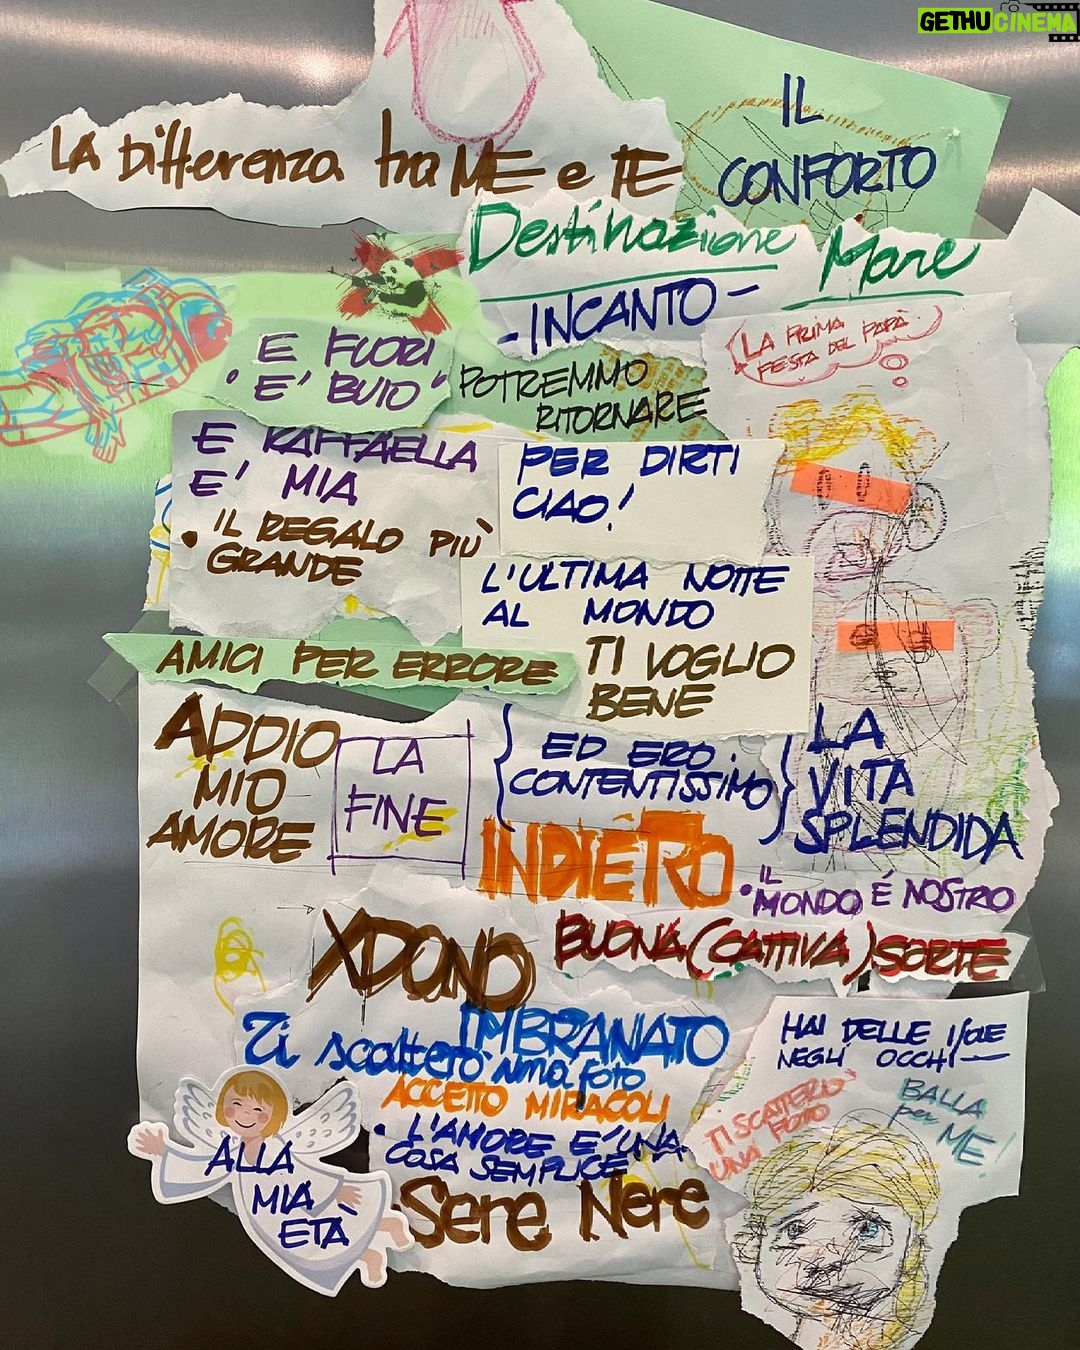 GETHUCINEMA
IL
CONFORTO
LA DIFFERENZA tra ME e TE
Destinazione Mare
- INCANTO -
LA PRIMA
FESTA DEL PAPÀ
E FUORI
E' BUIO
POTREMMO
RITORNARE
E RAFFAELLA
E' MIA
PER DIRTI
CIAO!
• IL REGALO PIÙ
GRANDE
L'ULTIMA NOTTE
AL MONDO
AMICI PER ERRORE
TI VOGLIO
BENE
ADDIO
MIO
AMORE
LA
FINE
ED ERO
CONTENTISSIMO
LA
VITA
SPLENDIDA
INDIETRO
• IL
MONDO É NOSTRO
XDONO
BUONA (CATTIVA) SORTE
IMBRANATO
Ti scatterò una foto
ACCETTO MIRACOLI
• L'AMORE E' UNA
COSA SEMPLICE
Sere Nere
HAI DELLE ISOLE
NEGLI OCCHI
TI SCATTERÒ
UNA FOTO
BALLA
per
ME!
ALLA
MIA
ETÀ